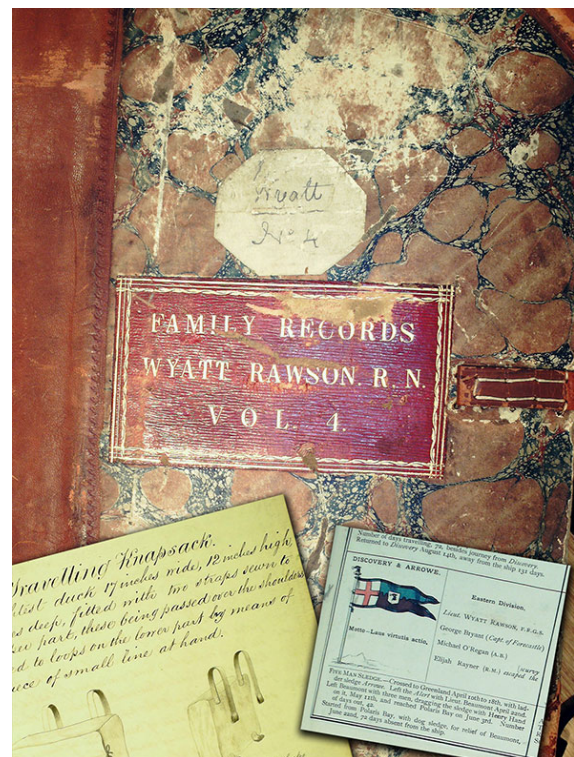 Wyatt
No 4
FAMILY RECORDS
WYATT RAWSON. R. N.
VOL. 4.
Travelling Knapsack.
test duck 17 inches wide, 12 inches high,
deep, fitted with two straps sewn to
part, these being passed over the shoulders
d to loops on the lower part by means of
iece of small line at hand.
Number of days travelling, 70, besides journey from Discovery.
Returned to Discovery August 14th, away from the ship 132 days.
DISCOVERY & ARROWE.
Eastern Division.
Lieut. WYATT RAWSON, F.R.G.S.
George Bryant (Capt. of Forecastle)
Michael O'Regan (A.B.)
Elijah Rayner (R.M.) escaped the
[scurvy
Motto—Laus virtutis actio,
FIVE MAN SLEDGE.—Crossed to Greenland April 10th to 18th, with lad-
der sledge Arrowe. Left the Alert with Lieut. Beaumont April 22nd.
Left Beaumont with three men, dragging the sledge with Heavy Hand
on it, May 11th, and reached Polaris Bay on June 3rd. Number
of days out, 42.
Started from Polaris Bay, with dog sledge, for relief of Beaumont,
June 22nd, 72 days absent from the ship.